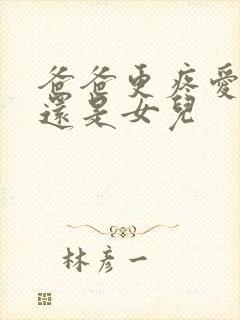 爸爸更疼愛
還是女兒
林彥一